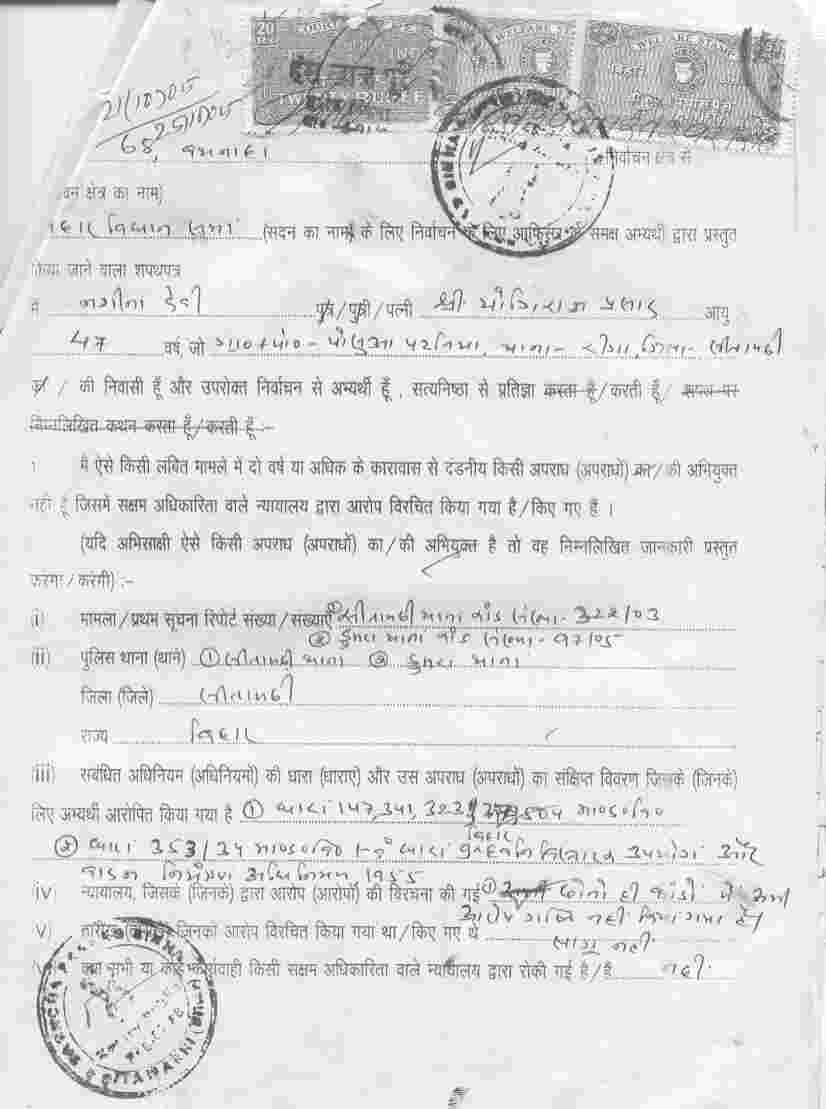 20
TWENTY RUPEE
WELFARE STAMP
21/10/05
25/10/05
68, बथनाहा निर्वाचन क्षेत्र से
वन क्षेत्र का नाम)
विधान सभा (सदन का नाम) के लिए निर्वाचन के लिए आफिसर के समक्ष अभ्यर्थी द्वारा प्रस्तुत
किया जाने वाला शपथपत्र
मैं नगीना देवी पुत्र/पुत्री/पत्नी श्री योगिराज प्रसाद आयु
47 वर्ष, जो ग्रा०+पो०- थाना- रीगा, जिला- सीतामढी
का / की निवासी हूँ और उपरोक्त निर्वाचन से अभ्यर्थी हूँ , सत्यनिष्ठा से प्रतिज्ञा करता हूँ/करती हूँ/ शपथ पर
निम्नलिखित कथन करता हूँ/करती हूँ :-
मैं ऐसे किसी लंबित मामले में दो वर्ष या अधिक के कारावास से दंडनीय किसी अपराध (अपराधों) का/की अभियुक्त
नहीं हूँ जिसमें सक्षम अधिकारिता वाले न्यायालय द्वारा आरोप विरचित किया गया है/किए गए हैं ।
(यदि अभिसाक्षी ऐसे किसी अपराध (अपराधों) का/की अभियुक्त है तो वह निम्नलिखित जानकारी प्रस्तुत
करेगा/करेगी) :-
(i) मामला/प्रथम सूचना रिपोर्ट संख्या/संख्याएं ① सीतामढी थाना कांड संख्या- 322/03
② डुमरा थाना कांड संख्या- 97/05
(ii) पुलिस थाना (थाने) ① सीतामढी थाना ② डुमरा थाना
जिला (जिले) सीतामढी
राज्य बिहार
(iii) संबंधित अधिनियम (अधिनियमों) की धारा (धाराएं) और उस अपराध (अपराधों) का संक्षिप्त विवरण जिसके (जिनके)
लिए अभ्यर्थी आरोपित किया गया है ① धारा 147, 341, 323, 504 भा०द०वि०
② धारा 353/34 भा०द०वि० एवं धारा बिहार ध्वनि विस्तारक उपयोग और
वादन नियंत्रण अधिनियम 1955
iv) न्यायालय, जिसके (जिनके) द्वारा आरोप (आरोपों) की विरचना की गई ① दोनो ही कांडो में अभी
आरोप गठित नही किया गया है।
v) तारीख जिनको आरोप विरचित किया गया था/किए गए थे लागू नही
क्या सभी या कोई कार्यवाही किसी सक्षम अधिकारिता वाले न्यायालय द्वारा रोकी गई है/हैं नही